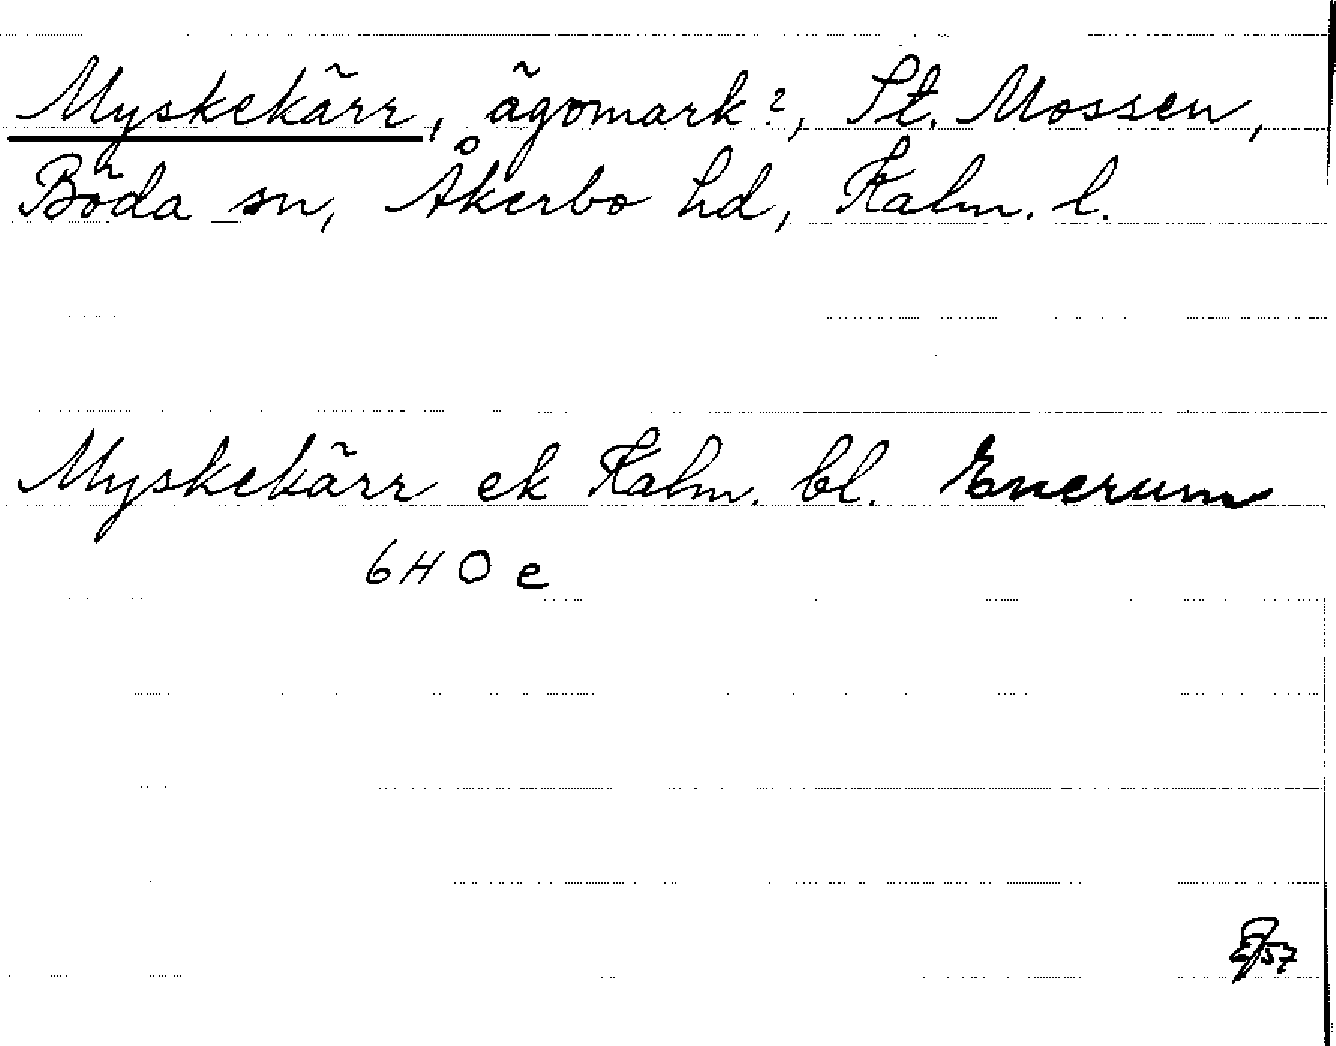 Myskekärr, ägomark?, St. Mossen,
Böda sn, Åkerbo hd, Kalm. l.
Myskekärr ek Kalm. bl. Enerum
6H 0 e
57